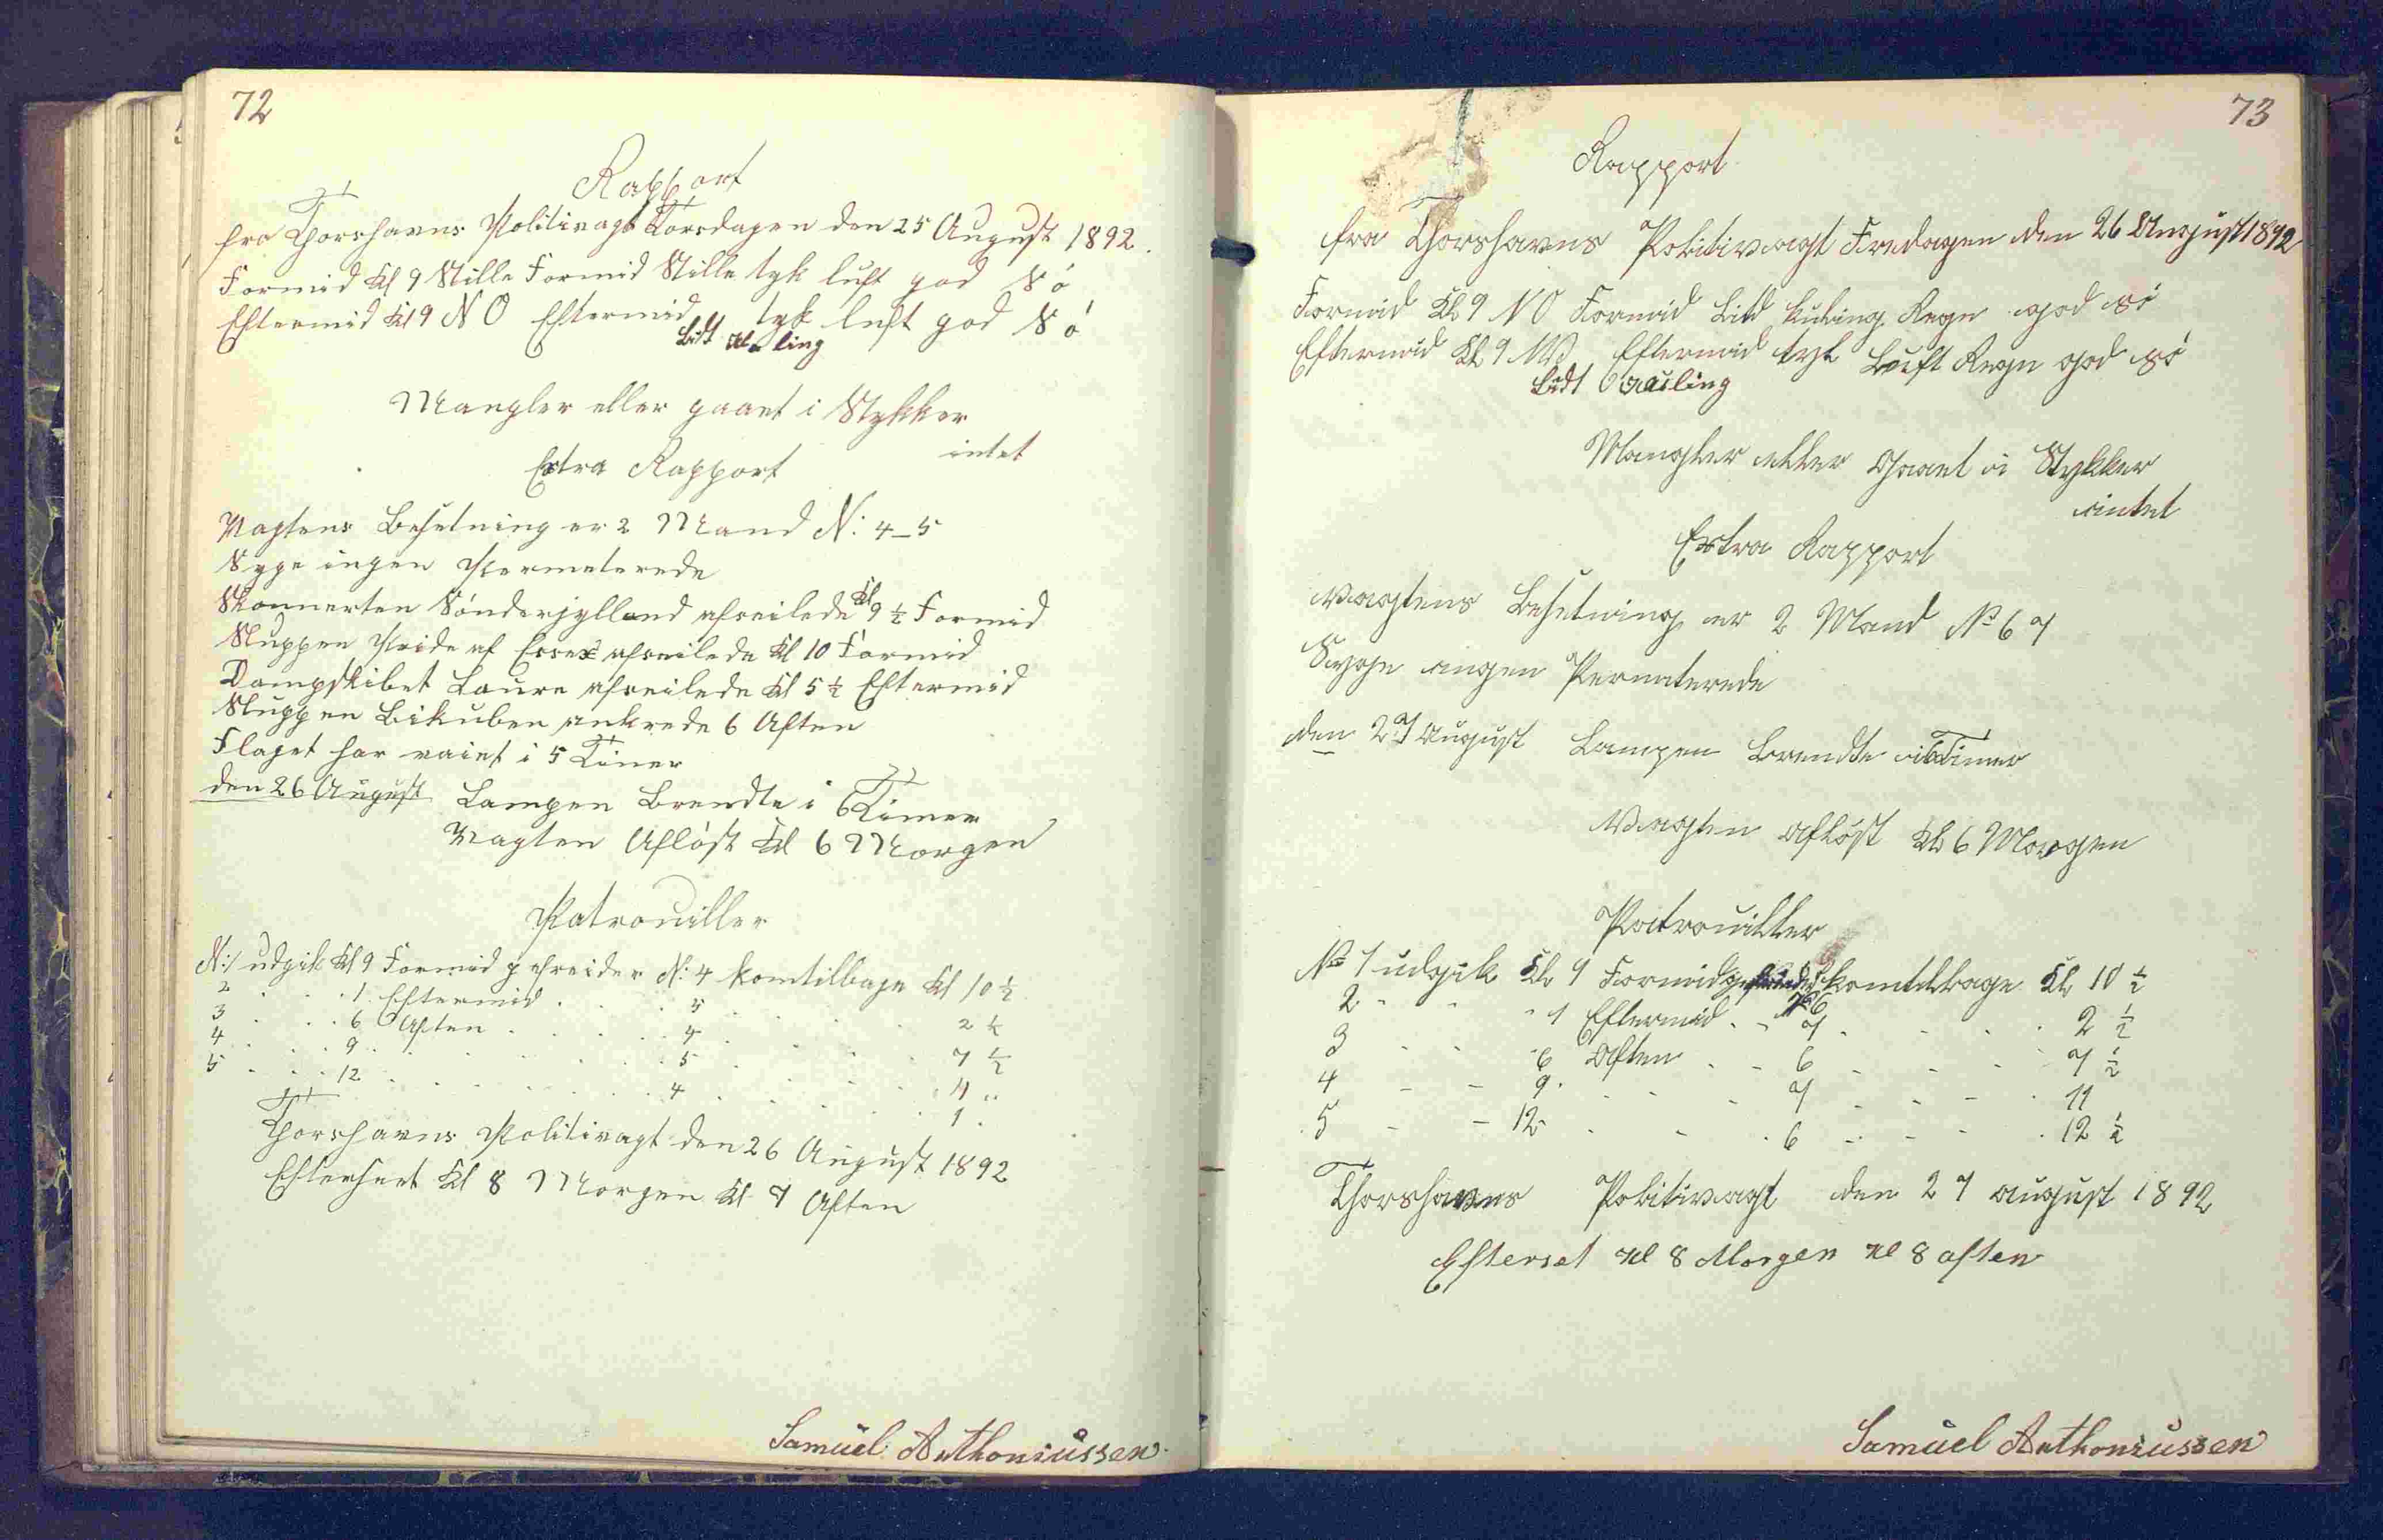 72
Rapport
fra Thorshavns Politivagt Torsdagen den 25 August 1892.
Formid Kl 9 Stille Formid Stille tyk luft god Sö
Eftermid Kl 9 N O Eftermid tyk luft god Sö
Lidt Kuling
Mangler eller gaaet i Stykker
intet
Extra Rapport
Vagtens Besetning er 2 Mand N: 4-5
Syge ingen Permeterede
Skonnerten Sönderjylland afseilede Kl 9 ½ Formid
Sluppen Pride af Essex afseilede Kl 10 Formid
Dampskibet Laura afseilede Kl 5 ½ Eftermid
Sluppen Bikuben ankrede 6 Aften
Flaget har vaiet i 5 Timer
den 26 August Lampen Brendte i 6 Timer
Vagten Aflöst Kl 6 Morgen
Patrouiller
N: 1 udgik Kl 9 Formid gefreider N: 4 komtilbage Kl 10 ½
2 . . . 1 Eftermid . . . 5 . . . 2 ½
3 . . . 6 Aften . . . 4 . . . 7 ½
4 . . . 9 . . . 5 . . . 11 "
5 . . . 12 . . . 4 . . . 1 .
Thorshavns Politivagt den 26 August 1892
Efterseet Kl 8 Morgen Kl 7 Aften
Samuel Anthoniussen
73
Rapport
fra Thorshavns Politivagt Fredagen den 26 August 1892
Formid Kl 9 NO Formid Lidt Kuling Regn god sö
Eftermid Kl 9 NO Eftermid tyk Luft Regn god sö
Lidt Kuling
Mangler eller Gaaet i Stykker
intet
Extra Rapport
Vagtens Besetning er 2 Mand No 6 7
Syge ingen Permeterede
den 27 August Lampen Brendte i 6 Timer
Vagten Aflöst Kl 6 Morgen
Patrouiller
No 1 udgik Kl 9 Formid komtilbage Kl 10 ½
No 6
2 - - - 1 Eftermid - - 7 - - - 2 ½
3 - - - 6 Aften - - 6 - - - 7 ½
4 - - 9 - - - 7 - - - 11
5 - - 12 - - - 6 - - - 12 ½
Thorshavns Politivagt den 27 August 1892
Efterset Kl 8 Morgen Kl 8 aften
Samuel Anthoniussen